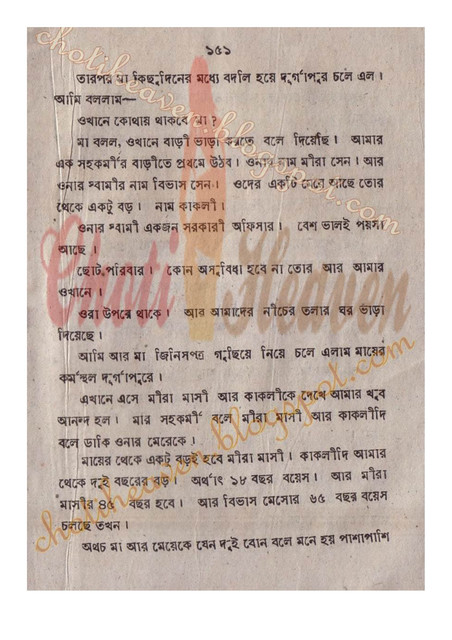 ১৫১
তারপর মা কিছুদিনের মধ্যে বদলি হয়ে দুর্গাপুর চলে এল।
আমি বললাম—
ওখানে কোথায় থাকবে মা?
মা বলল, ওখানে বাড়ী ভাড়া করতে বলে দিয়েছি। আমার
এক সহকর্মীর বাড়ীতে প্রথমে উঠব। ওনার নাম মীরা সেন। আর
ওনার স্বামীর নাম বিভাস সেন। ওদের একটি মেয়ে আছে তোর
থেকে একটু বড়। নাম কাকলী।
ওনার স্বামী একজন সরকারী অফিসার। বেশ ভালই পয়সা
আছে।
ছোট পরিবার। কোন অসুবিধা হবে না তোর আর আমার
ওখানে।
ওরা উপরে থাকে। আর আমাদের নীচের তলার ঘর ভাড়া
দিয়েছে।
আমি আর মা জিনিসপত্র গুছিয়ে নিয়ে চলে এলাম মায়ের
কর্মস্থল দুর্গাপুরে।
এখানে এসে মীরা মাসী আর কাকলীকে দেখে আমার খুব
আনন্দ হল। মার সহকর্মী বলে মীরা মাসী আর কাকলীদি
বলে ডাকি ওনার মেয়েকে।
মায়ের থেকে একটু বড়ই হবে মীরা মাসী। কাকলীদি আমার
থেকে দুই বছরের বড়। অর্থাৎ ১৮ বছর বয়েস। আর মীরা
মাসীর ৪৫ বছর হবে। আর বিভাস মেসোর ৬৫ বছর বয়েস
চলছে তখন।
অথচ মা আর মেয়েকে যেন দুই বোন বলে মনে হয় পাশাপাশি
Choti Heaven
chotiheaven.blogspot.com
chotiheaven.blogspot.com
chotiheaven.blogspot.com